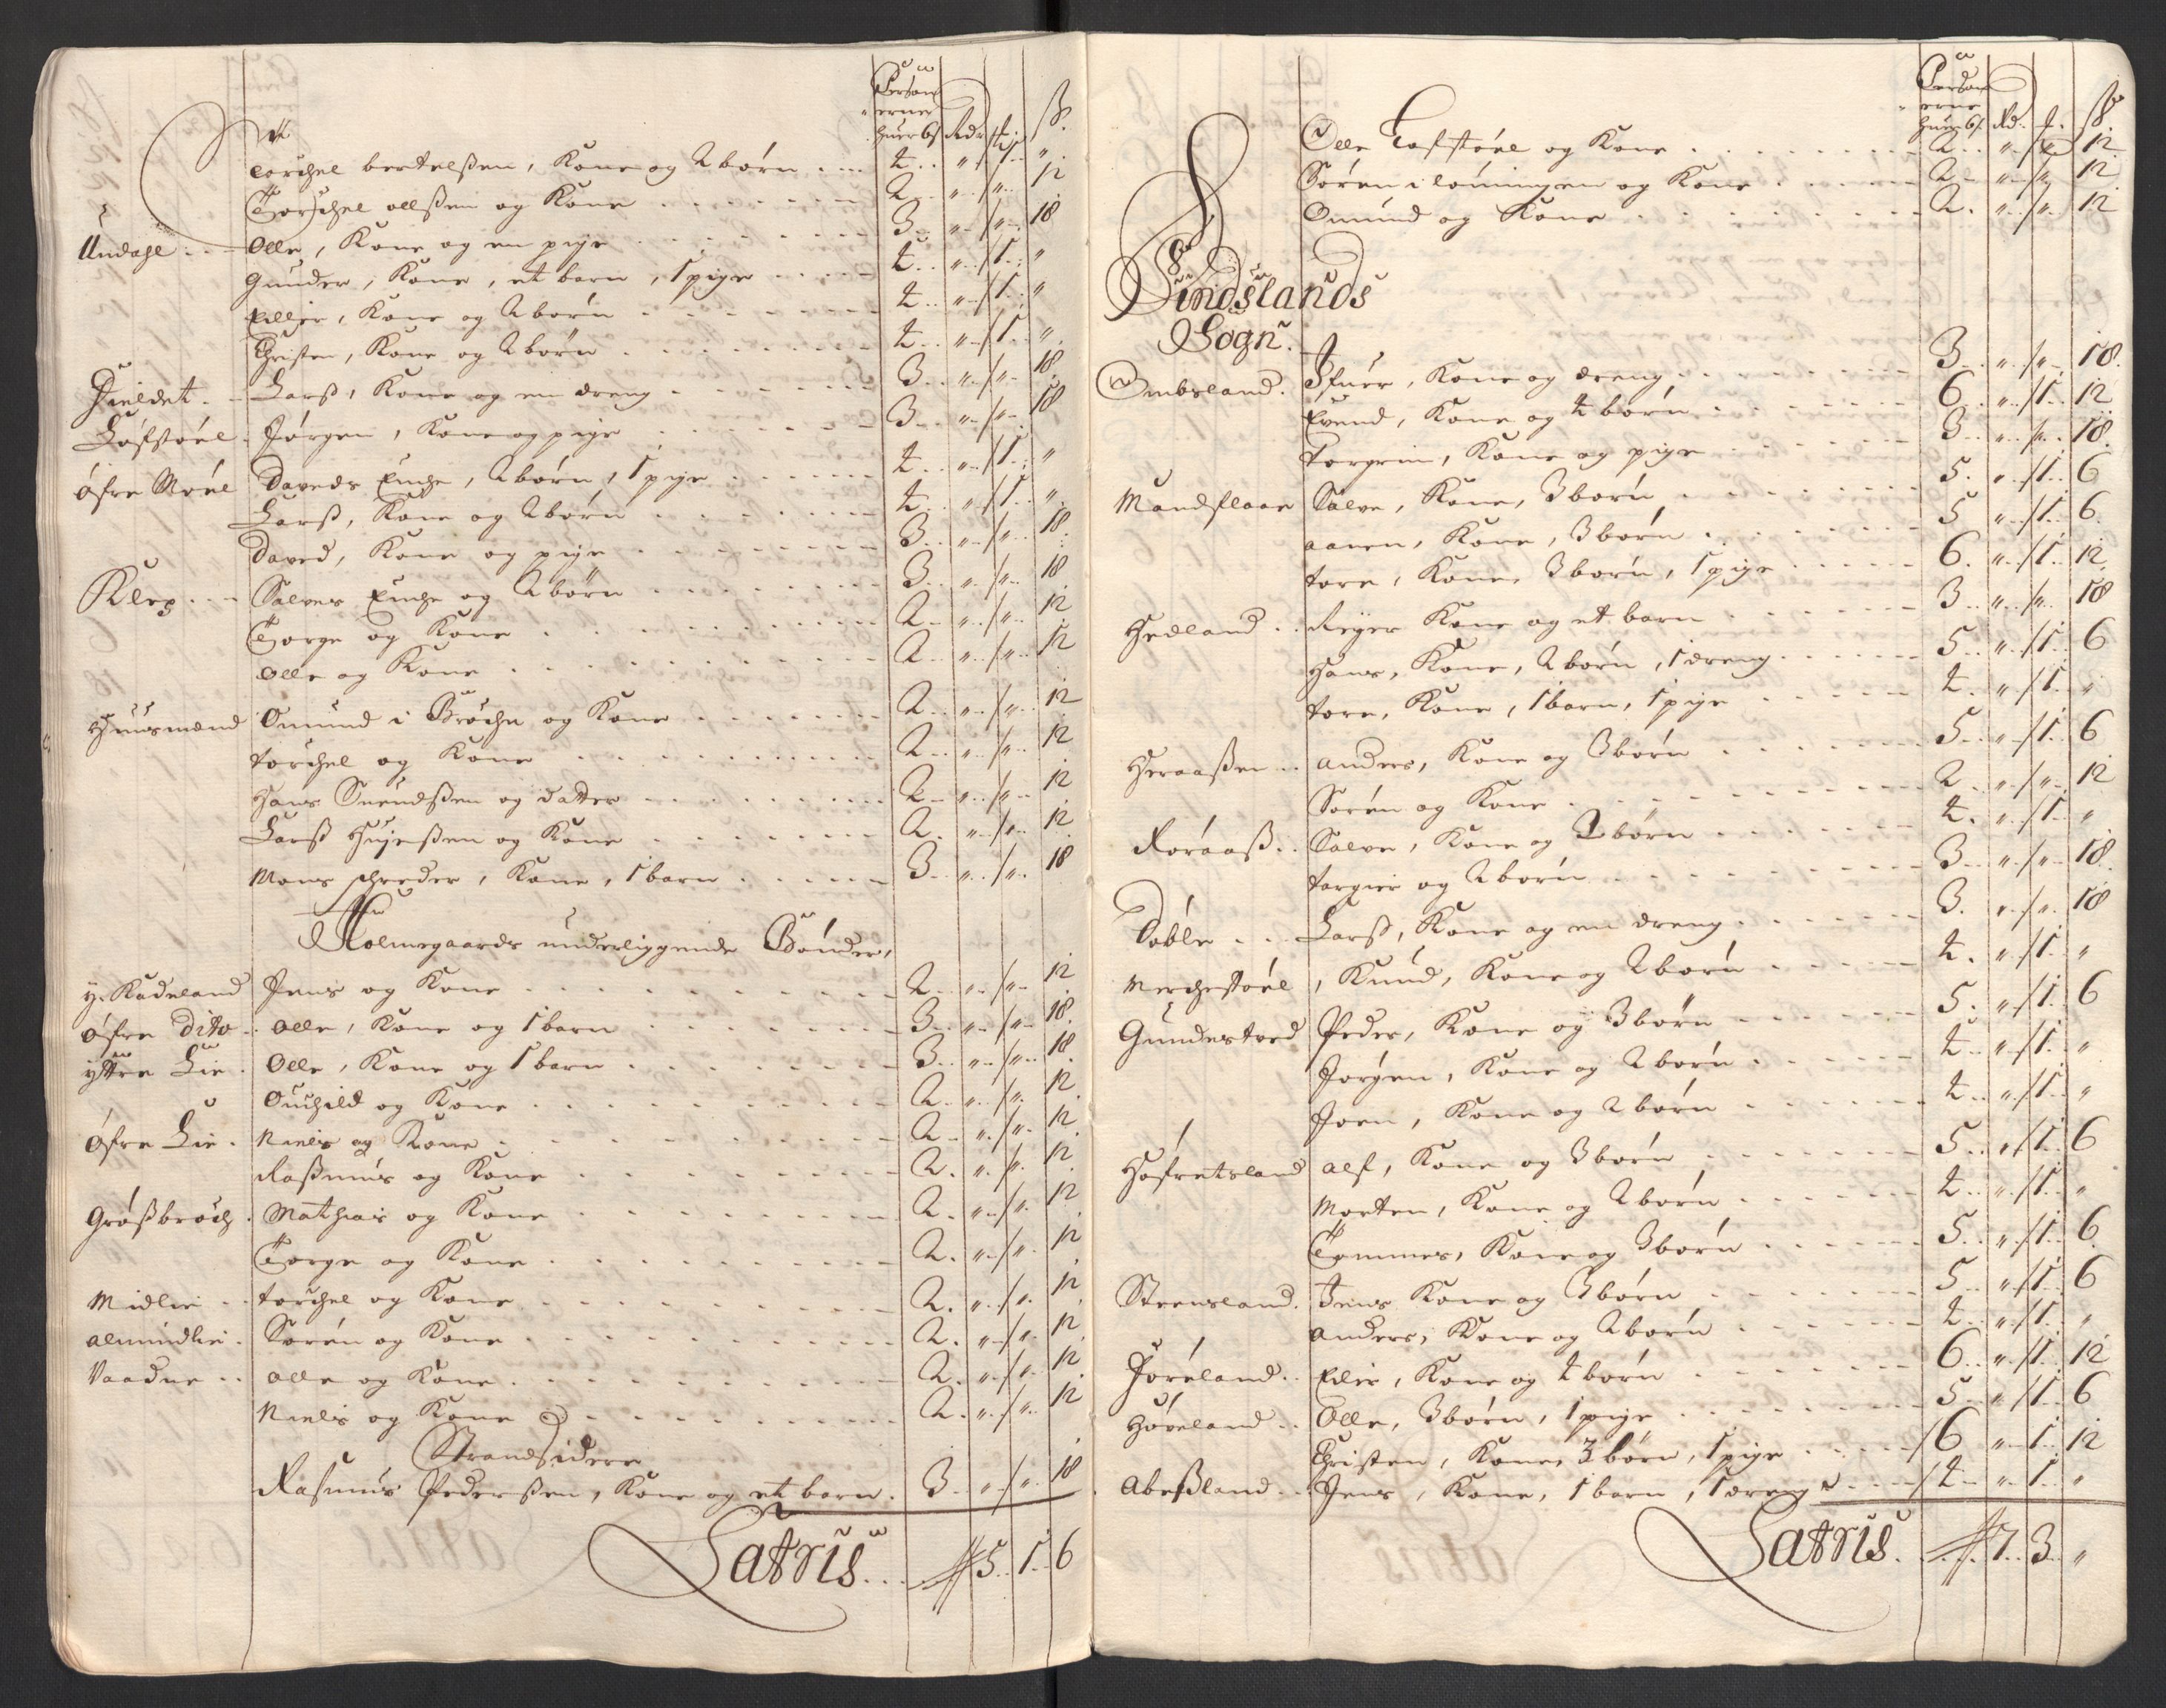 Person
erne
huer 6 s Rdr ß.
Torchel bertelßen, Kone og 2 börn . . . 4 . . " . 1 . . " .
Torchel ollßen og Kone . . . 2 . . " . " . . 12
Undahl . . Olle, Kone og en pige . . . 3 . . " . " . . 18
Gunder, Kone, et barn, 1 pige . . . 4 . . " . 1 . . "
Eiller, Kone og 2 börn . . . 4 . . " . 1 . . "
Christen, Kone og 2 börn . . . 4 . . " . 1 . . " .
Fieldet . Larß, Kone og en dreng . . . 3 . . " . " . . 18
Löfstöel . Jörgen, Kone og pige . . . 3 . . " . " . . 18
Öfre Möel Daveds Enche, 2 börn, 1 pige . . . 4 . . " . 1 . . "
Larß, Kone og 2 börn . . . 4 . . " . 1 . . " .
Daved, Kone og pige . . . 3 . . " . " . . 18
Klep . . Salves Enche og 2 börn . . . 3 . . " . " . . 18
Torge og Kone . . . 2 . . " . " . . 12
Olle og Kone . . . 2 . . " . " . . 12
Huusmænd Omund i Bröche og Kone . . . 2 . . " . " . . 12
torchel og Kone . . . 2 . . " . " . . 12
Hans Suendßen og datter . . . 2 . . " . " . . 12
Larß Hujeßen og Kone . . . 2 . . " . " . . 12
Mons schreder, Kone, 1 barn . . . 3 . . " . " . . 18
Holmegaards underliggende Bönder,
y. Kadeland Jens og Kone . . . 2 . . " . " . . 12
öfre Dito . Olle, Kone og 1 barn . . . 3 . . " . " . . 18
yttre Lie . Olle, Kone og 1 barn . . . 3 . . " . " . . 18
Ouchild og Kone . . . 2 . . " . " . . 12
Öfre Lie . Nielß og Kone . . . 2 . . " . " . . 12
Raßmus og Kone . . . 2 . . " . " . . 12
Größ bröch . Mathias og Kone . . . 2 . . " . " . . 12
Torge og Kone . . . 2 . . " . " . . 12
Midlie . . torchel og Kone . . . 2 . . " . " . . 12
almindlie . Sörén og Kone . . . 2 . . " . " . . 12
Vaadne . . Olle og Kone . . . 2 . . " . " . . 12
Nielß og Kone . . . 2 . . " . " . . 12
StrandSidere
Rasmus Pederßen, Kone og et barn . 3 . . " . " . . 18
Latris . . . 5 . . 1 . . 6
Person
erne
huer 6 s Rd. ß
Olle Lofstöel og Kone . . . 2 . . " . " . . 12
Sören i löningen og Kone . . . 2 . . " . " . . 12
Omund og Kone . . . 2 . . " . " . . 12
Findslands
Sogn.
Ombsland . Ifuer, Kone og dreng . . . 3 . . " . " . . 18
Evend, Kone og 4 börn . . . 6 . . " . 1 . . 12
Torgrim, Kone og pige . . . 3 . . " . " . . 18
Mandflaae Salve, Kone, 3 börn . . . 5 . . " . 1 . . 6
aanen, Kone, 3 börn . . . 5 . . " . 1 . . 6
tore, Kone, 3 börn, 1 pige . . . 6 . . " . 1 . . 12
Hedland . . Reyer Kone og et barn . . . 3 . . " . " . . 18
Hans, Kone, 2 börn, 1 dreng . . . 5 . . " . 1 . . 6
tore, Kone, 1 barn, 1 pige . . . 4 . . " . 1 . . "
Heraaßen . . anders, Kone og 3 börn . . . 5 . . " . 1 . . 6
Sören og Kone . . . 2 . . " . " . . 12
Röraaß . . Salve, Kone og 2 börn . . . 4 . . " . 1 . . "
torgier og 2 börn . . . 3 . . " . " . . 18
Döble . . Larß, Kone og en dreng . . . 3 . . " . " . . 18
Merchestöel, Knud, Kone og 2 börn . . . 4 . . " . 1 . . "
Gundestved Peder, Kone og 3 börn . . . 5 . . " . 1 . . 6
Jörgen, Kone og 2 börn . . . 4 . . " . 1 . . "
Joen, Kone og 2 börn . . . 4 . . " . 1 . . "
Höfretsland alf, Kone og 3 börn . . . 5 . . " . 1 . . 6
Morten, Kone og 2 börn . . . 4 . . " . 1 . . "
Tommes, Kone og 3 börn . . . 5 . . " . 1 . . 6
Steensland . Jens Kone og 3 börn . . . 5 . . " . 1 . . 6
anders, Kone og 2 börn . . . 4 . . " . 1 . . "
Föreland . . Edis, Kone og 4 börn . . . 6 . . " . 1 . . 12
Höreland . . Olle, 3 börn, 1 pige . . . 5 . . " . 1 . . 6
Christen, Kone, 3 börn, 1 pige . . . 6 . . " . 1 . . 12
Abeßland . . Jens, Kone, 1 barn, 1 dreng . . . 4 . . " . 1 . . "
Latris . . . 7 . . 3 . . "